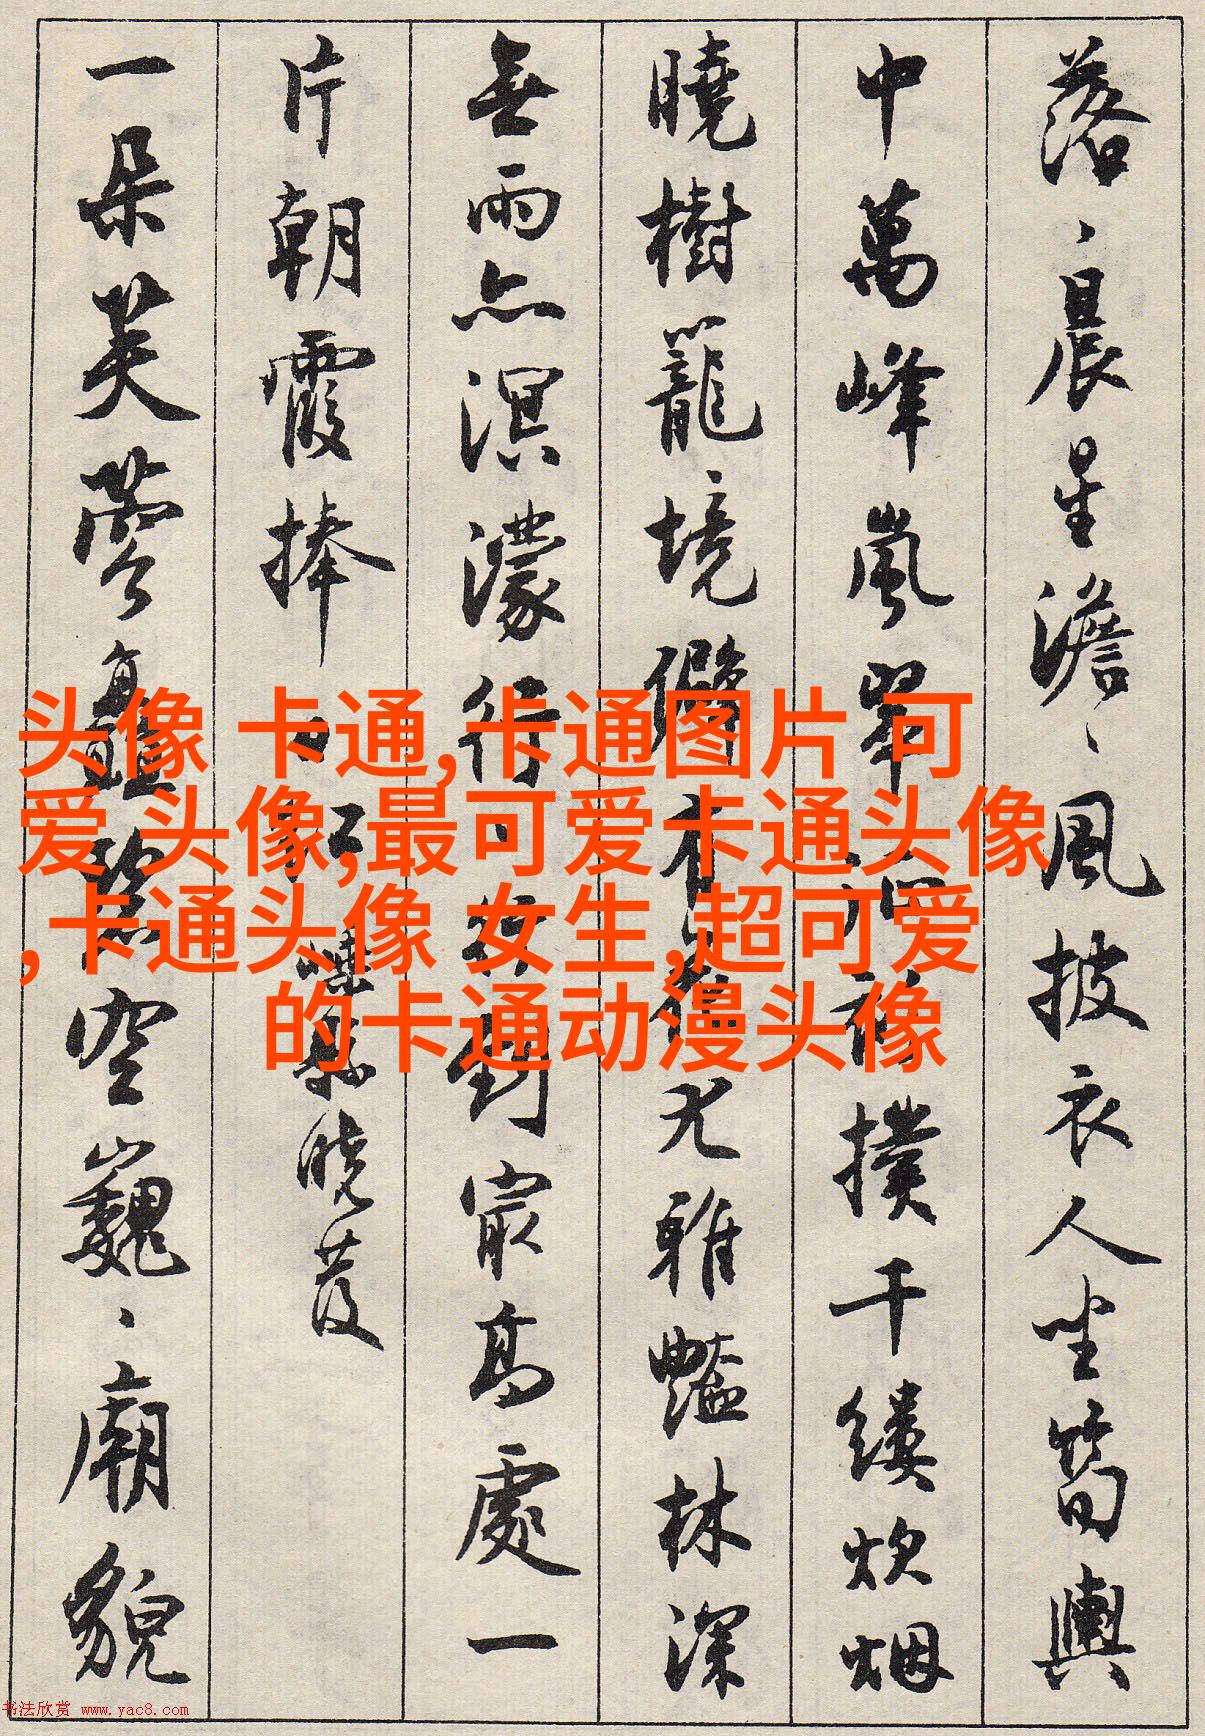 落、晨星澹、風披衣人坐筍輿
中萬峰嵐翠 初撲千縷炊烟
曉樹籠、境僻 尤雅豔林深
無雨亦溟濛行、 到最高處一
片朝霞捧、 縣曉發
一朵芙蓉 空巍、廟貌
头像 卡通,卡通图片 可
爱 头像,最可爱卡通头像
,卡通头像 女生,超可爱
的卡通动漫头像
书法欣赏 www.yac8.com